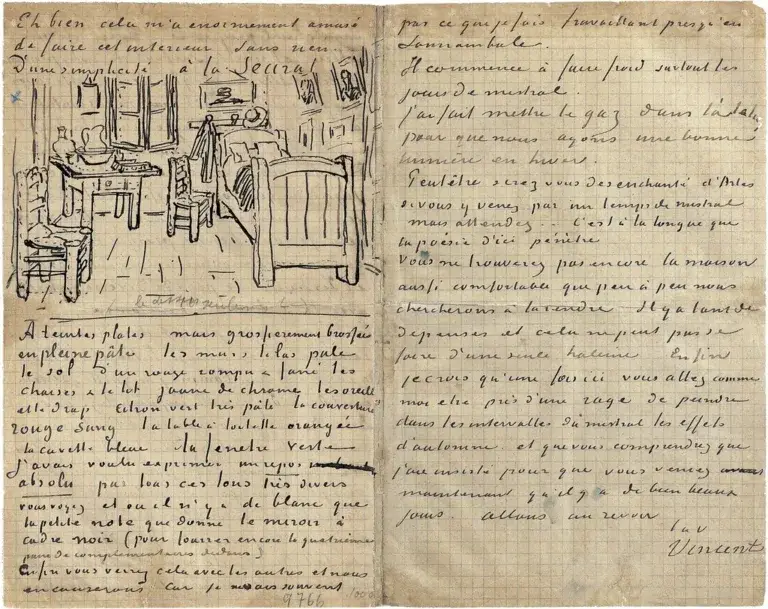 Eh bien cela m'a enormement amusé
de faire cet interieur sans rien.
D'une simplicité à la Seurat
A teintes plates mais grossierement brossée
en pleine pâte les murs lilas pale
le sol d'un rouge rompu & fané les
chaises & le lit jaune de chrome les oreill
et le drap citron vert très pâle la couverture
rouge sang la table à toilette orangée
la cuvette bleue la fenetre verte
J'avais voulu exprimer un repos
absolu par tous ces tons très divers
vous voyez et ou il n'y a de blanc que
la petite note que donne le miroir à
cadre noir (pour fourrer encore la quatrième
paire de complementaires dedans)
Enfin vous verrez cela avec les autres et nous
en causerons car je ne sais souvent
9766
pas ce que je fais travaillant presqu'en
somnambule.
Il commence à faire froid surtout les
jours de mistral.
j'ai fait mettre le gaz dans l'atelier
pour que nous ayons une bonne
lumière en hiver.
Peutêtre serez vous desenchanté d'Arles
si vous y venez par un temps de mistral
mais attendez.. C'est à la longue que
la poésie d'ici pénètre
Vous ne trouverez pas encore la maison
aussi comfortable que peu à peu nous
chercherons à la rendre Il y a tant de
depenses et cela ne peut pas se
faire d'une seule haleine Enfin
je crois qu'une fois ici vous allez comme
moi etre pris d'une rage de peindre
dans les intervalles du mistral les effets
d'automne. et que vous comprendrez que
j'aie insisté pour que vous veniez
maintenant qu'il y a de bien beaux
jours. allons au revoir
t.à.v
Vincent